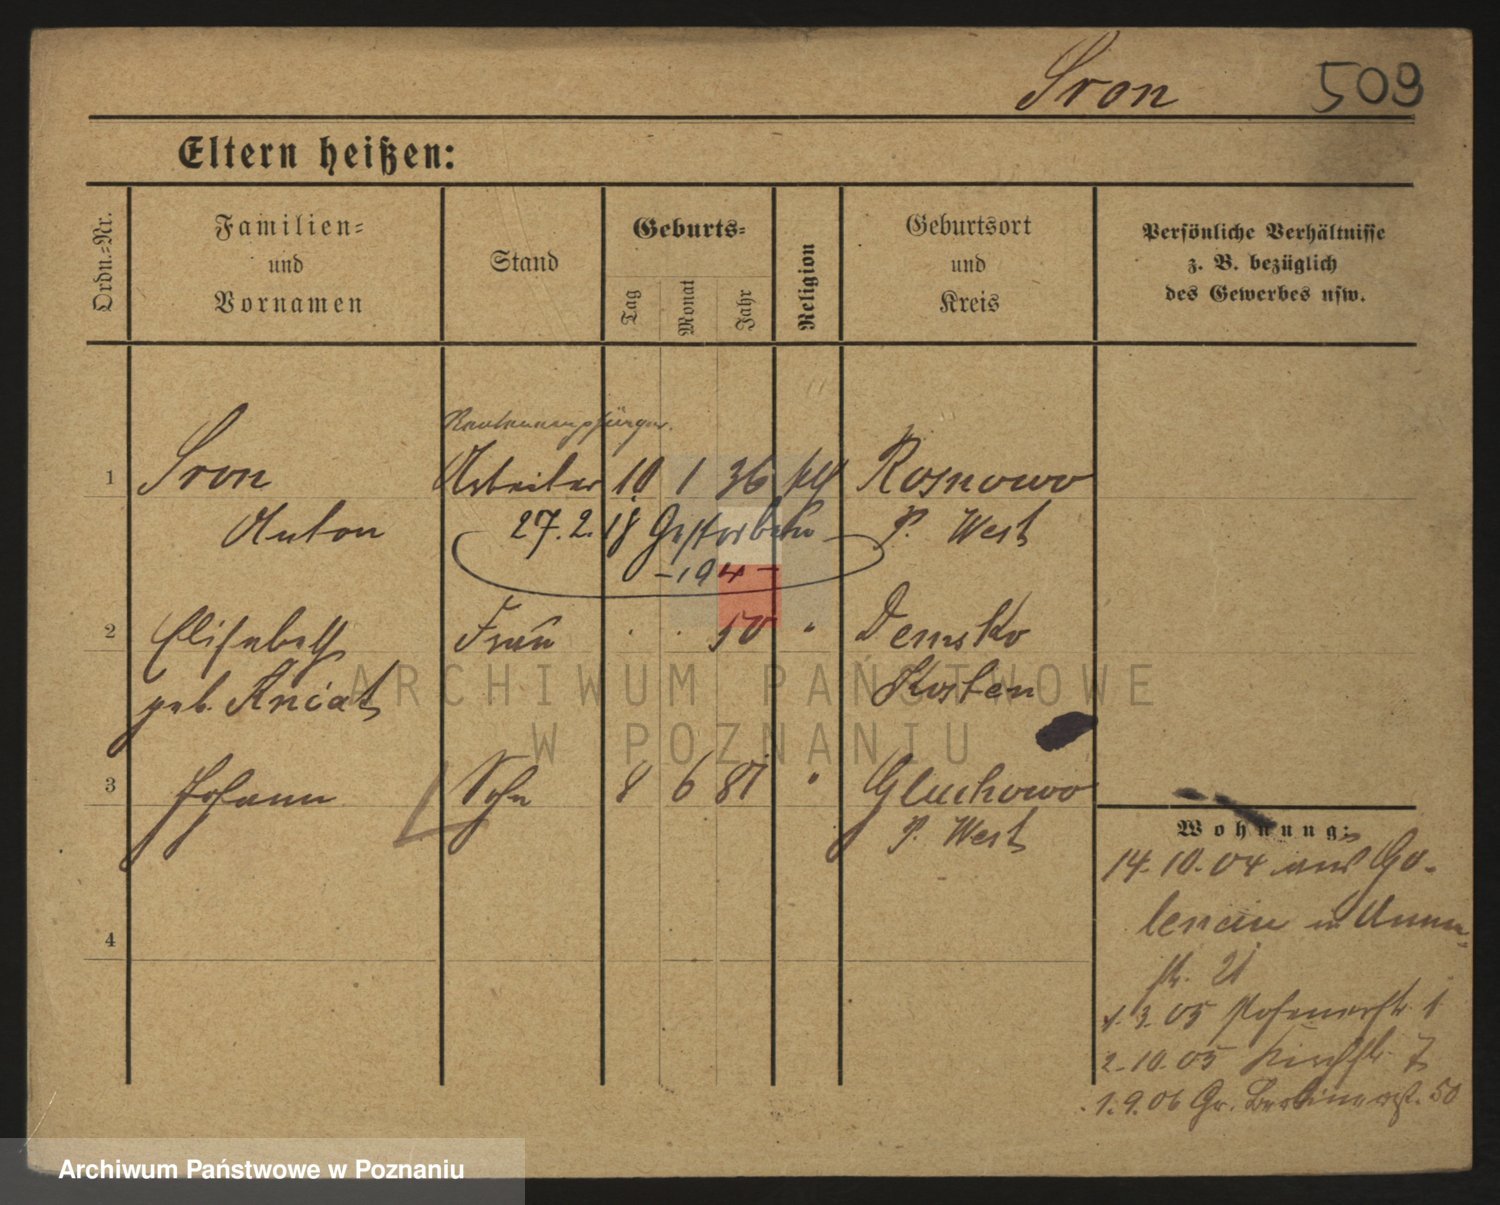 Sron 509
Eltern heißen:
Ordn.-Nr.
Familien-
und
Vornamen
Stand
Geburts-
Tag
Monat
Jahr
Religion
Geburtsort
und
Kreis
Persönliche Verhältnisse
z. B. bezüglich
des Gewerbes usw.
Rentenempfänger.
1 Sron Arbeiter 10 1 36 kth Rosnowo
Anton 27.2.18 Gestorben P. West
-194-
2 Elisabeth Frau . . 50 " Demsko
geb. Kosten
3 Johann Sohn 8 6 81 " Gluchowo
P. West
4
Wohnung:
14.10.04 aus Go-
lencin
str. 21
1.3.05 Posenerstr. 1
2.10.05 Kirchstr. 7
1.9.06 Gr. Berlinerst. 50
ARCHIWUM PAŃSTWOWE
W POZNANIU
Archiwum Państwowe w Poznaniu